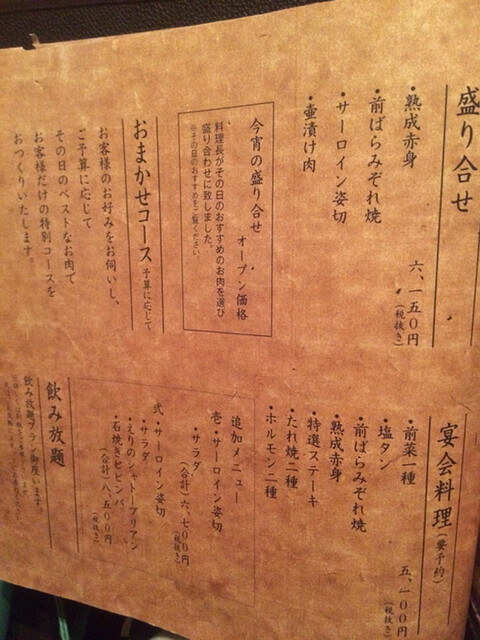 盛り合せ
・熟成赤身
・前ばらみぞれ焼
・サーロイン姿切
・壷漬け肉
六、一五〇円
(税抜き)
今宵の盛り合せ
オープン価格
料理長がその日のおすすめのお肉を選び
盛り合わせに致しました。
※その日のおすすめをご覧ください。
おまかせコース 予算に応じて
お客様のお好みをお伺いし、
ご予算に応じて
その日のベストなお肉で
お客様だけの特別コースを
おつくりいたします。
宴会料理(要予約)
五、一〇〇円
(税抜き)
・前菜一種
・塩タン
・前ばらみぞれ焼
・熟成赤身
・特選ステーキ
・たれ焼二種
・ホルモン二種
追加メニュー
壱・サーロイン姿切
・サラダ
(合計)六、七〇〇円
(税抜き)
弐・サーロイン姿切
・サラダ
・えりのシャトーブリアン
・石焼きビビンバ
(合計)八、五〇〇円
(税抜き)
飲み放題
飲み放題プラン御座います。